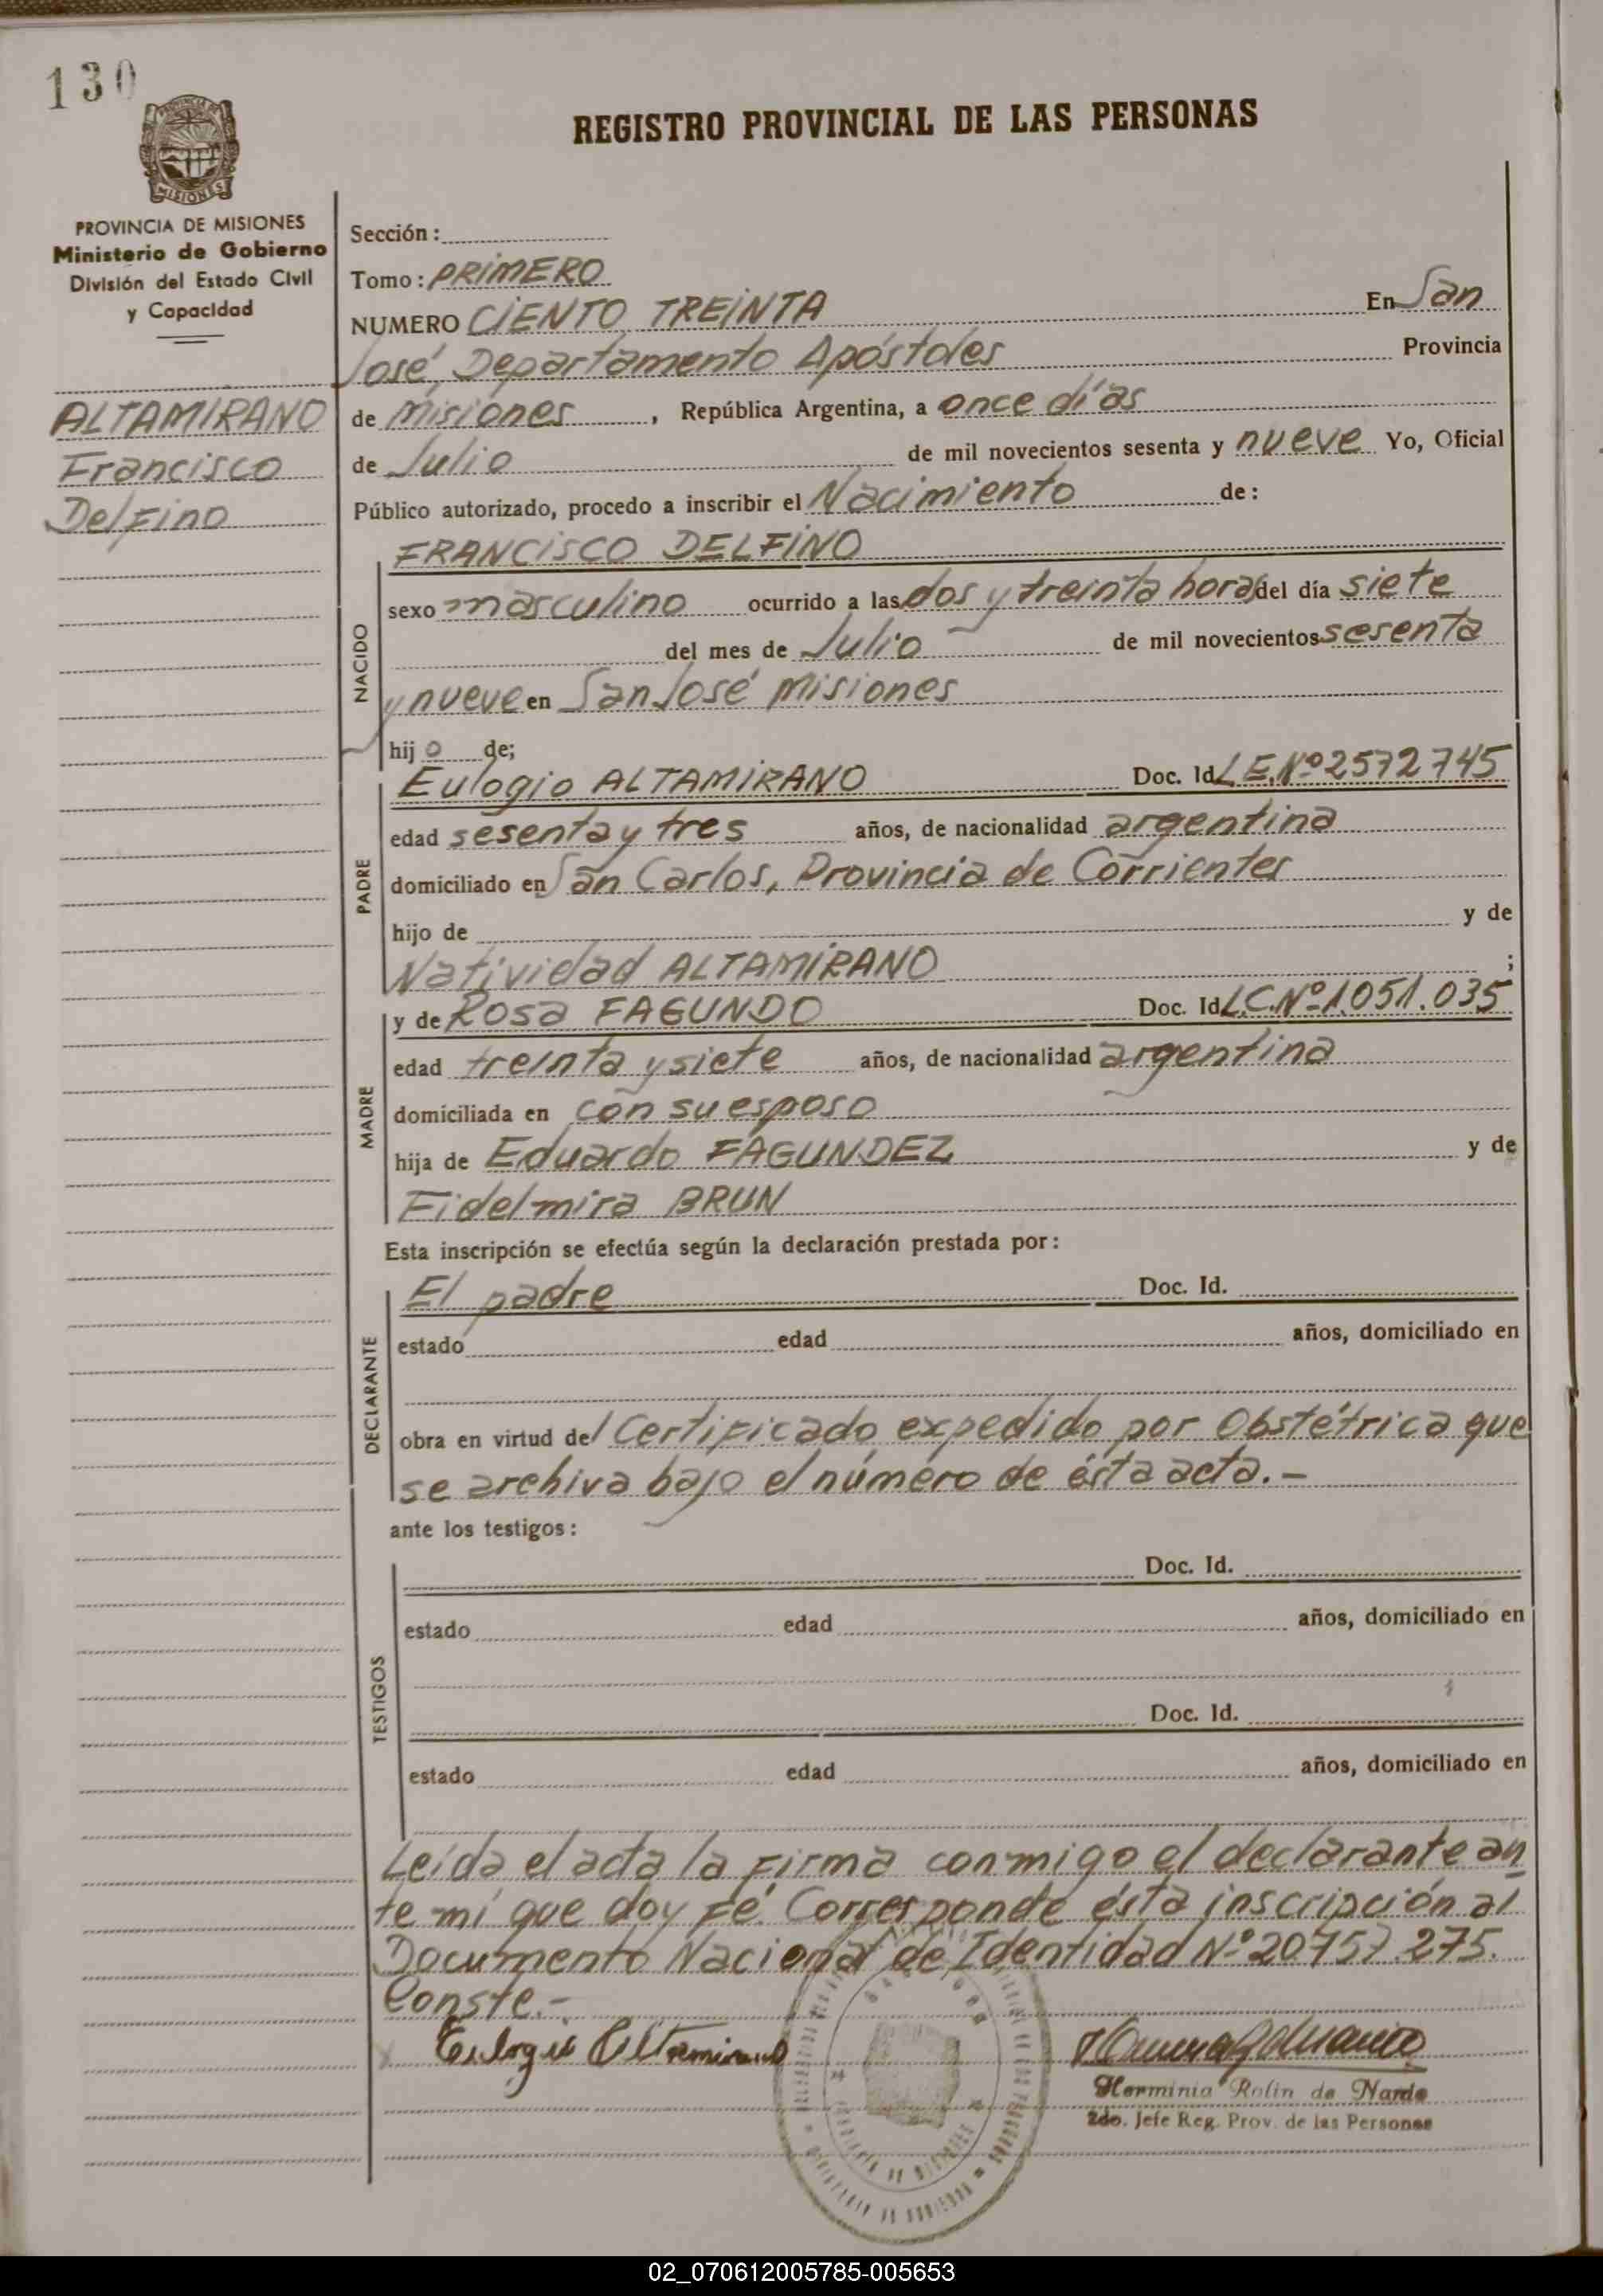 130
REGISTRO PROVINCIAL DE LAS PERSONAS
PROVINCIA DE MISIONES
Ministerio de Gobierno
División del Estado Civil
y Capacidad
ALTAMIRANO
Francisco
Delfino
Sección:
Tomo: PRIMERO
NUMERO CIENTO TREINTA En San
José, Departamento Apóstoles Provincia
de Misiones, República Argentina, a once días
de Julio de mil novecientos sesenta y nueve Yo, Oficial
Público autorizado, procedo a inscribir el Nacimiento de:
NACIDO
FRANCISCO DELFINO
sexo masculino ocurrido a las dos y treinta horas del día siete
del mes de Julio de mil novecientos sesenta
y nueve en San José Misiones
hijo de;
PADRE
Eulogio ALTAMIRANO Doc. Id. L.E.Nº 2572745
edad sesenta y tres años, de nacionalidad argentina
domiciliado en San Carlos, Provincia de Corrientes
hijo de y de
Natividad ALTAMIRANO ;
MADRE
y de Rosa FAGUNDO Doc. Id. L.C.Nº 1.051.035
edad treinta y siete años, de nacionalidad argentina
domiciliada en con su esposo
hija de Eduardo FAGUNDEZ y de
Fidelmira BRUN
Esta inscripción se efectúa según la declaración prestada por:
DECLARANTE
El padre Doc. Id.
estado edad años, domiciliado en
obra en virtud del Certificado expedido por Obstétrica que
se archiva bajo el número de ésta acta.-
ante los testigos:
TESTIGOS
Doc. Id.
estado edad años, domiciliado en
Doc. Id.
estado edad años, domiciliado en
Leída el acta la firma conmigo el declarante an
te mí que doy fé. Corresponde ésta inscripción al
Documento Nacional de Identidad Nº 20.757.275.
Conste.-
Eulogio Altamirano
Herminia Rolin de Nardo
2do. Jefe Reg. Prov. de las Personas
02_070612005785-005653